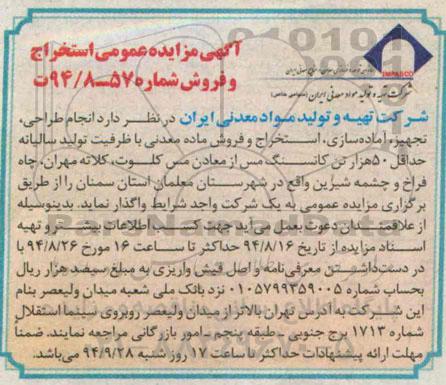 IMPASCO
شرکت تهیه و تولید مواد معدنی ایران (سهامی خاص)
آگهی مزایده عمومی استخراج
و فروش شماره ۵۷ــ۹۴/۸ت
شرکت تهیه و تولید مواد معدنی ایران در نظر دارد انجام طراحی،
تجهیز، آماده‌سازی، استخراج و فروش ماده معدنی با ظرفیت تولید سالیانه
حداقل ۵۰هزار تن کانسنگ مس از معادن مس کلوت، کلاته مهران، چاه
فراخ و چشمه شیرین واقع در شهرستان معلمان استان سمنان را از طریق
برگزاری مزایده عمومی به یک شرکت واجد شرایط واگذار نماید. بدینوسیله
از علاقمندان دعوت بعمل می‌آید جهت کسب اطلاعات بیشتر و تهیه
اسناد مزایده از تاریخ ۹۴/۸/۱۶ حداکثر تا ساعت ۱۶ مورخ ۹۴/۸/۲۶ با
در دست‌داشتن معرفی‌نامه و اصل فیش واریزی به مبلغ سیصد هزار ریال
بحساب شماره ۰۱۰۵۷۹۹۳۵۹۰۰۵ نزد بانک ملی شعبه میدان ولیعصر بنام
این شرکت به آدرس تهران بالاتر از میدان ولیعصر روبروی سینما استقلال
شماره ۱۷۱۳ برج جنوبی - طبقه پنجم -امور بازرگانی مراجعه نمایند. ضمناً
مهلت ارائه پیشنهادات حداکثر تا ساعت ۱۷ روز شنبه ۹۴/۹/۲۸ می‌باشد.